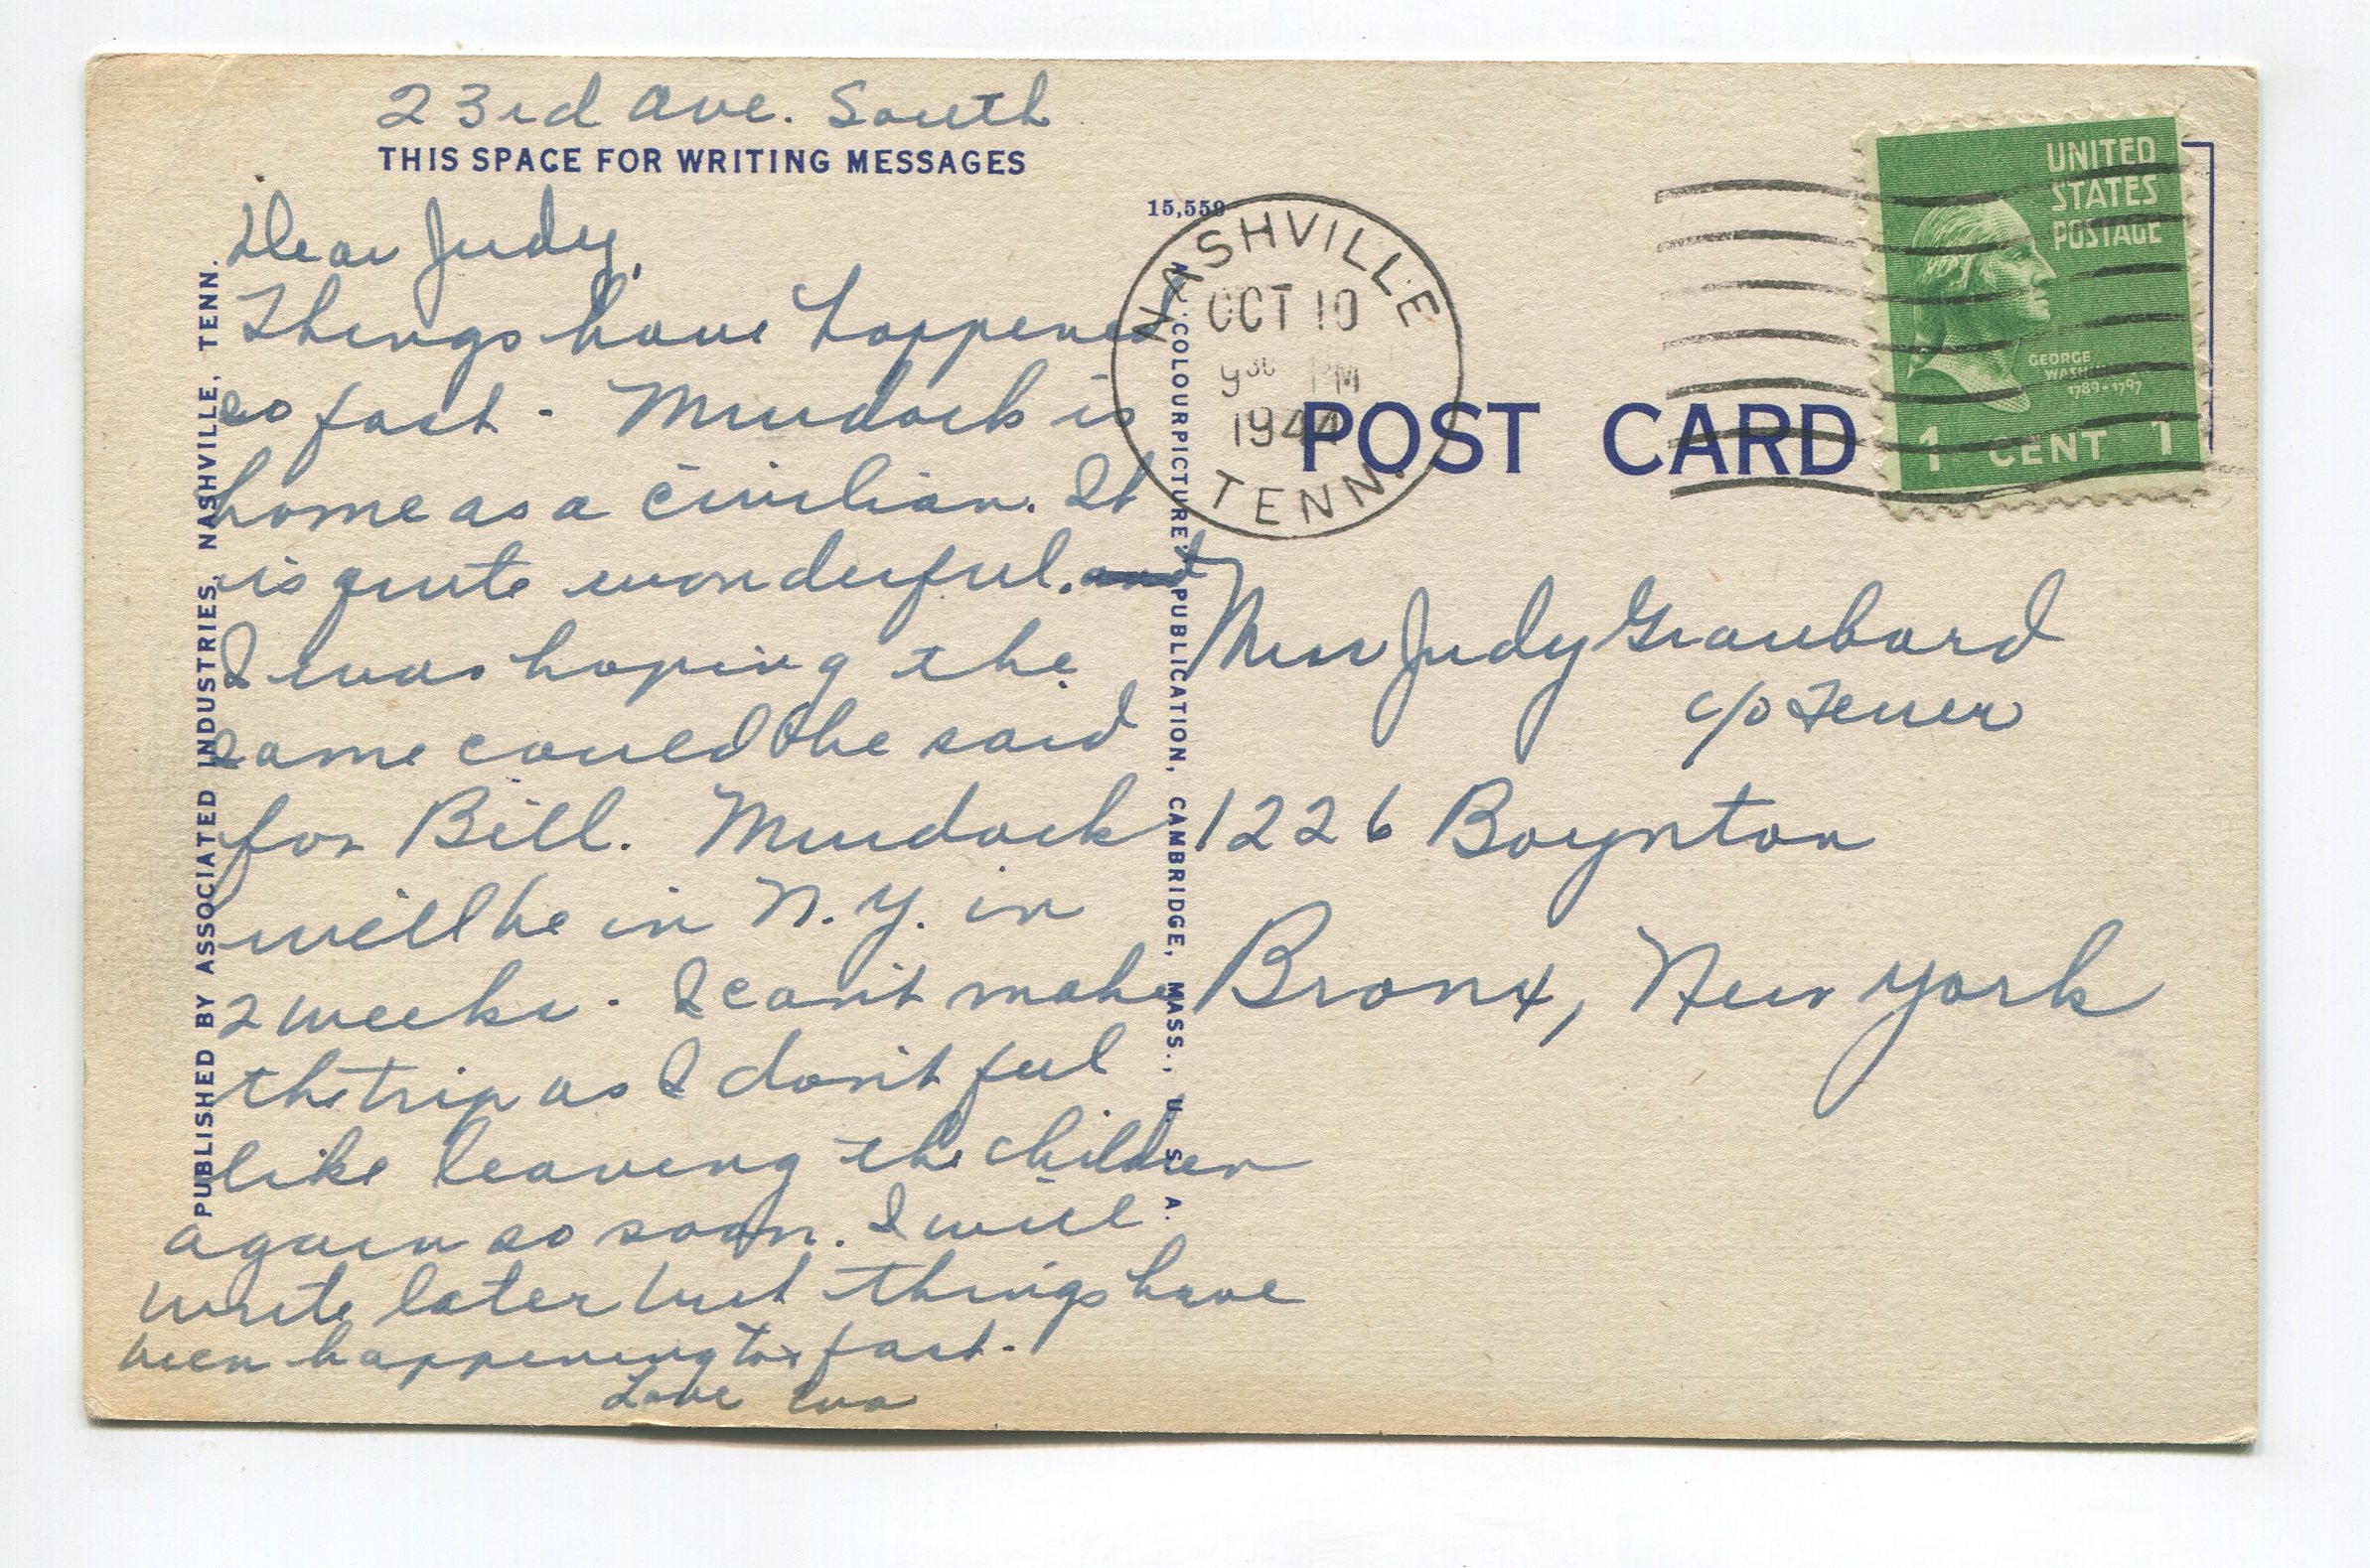 23rd Ave. South
THIS SPACE FOR WRITING MESSAGES
Dear Judy,
Things have happened
so fast - Murdock is
home as a civilian. It
is quite wonderful. and
I was hoping the
same could be said
for Bill. Murdock
will be in N.Y. in
2 weeks. I can't make
the trip as I don't feel
like leaving the children
again so soon. I will
write later but things have
been happening too fast.
Love Eva
PUBLISHED BY ASSOCIATED INDUSTRIES, NASHVILLE, TENN.
15,559
A "COLOURPICTURE" PUBLICATION, CAMBRIDGE, MASS., U. S. A.
NASHVILLE
OCT 10
9 30 PM
1944
TENN.
POST CARD
UNITED
STATES
POSTAGE
GEORGE
WASHINGTON
1789-1797
1 CENT 1
Miss Judy Graubard
c/o Feuer
1226 Boynton
Bronx, New York